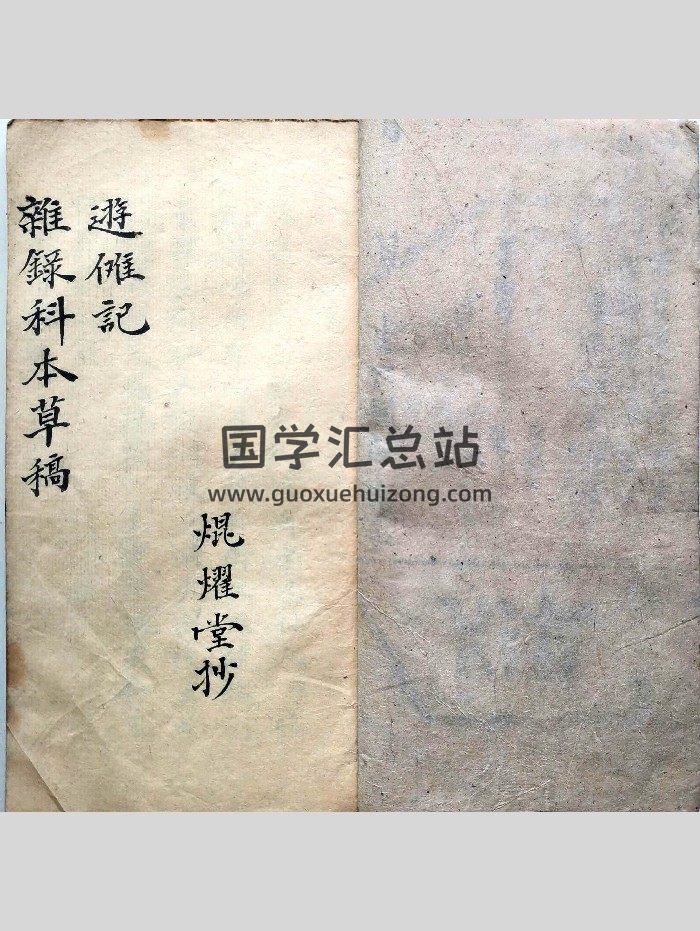 焜燿堂抄
遊傩記
雜錄科本草稿
国学汇总站
www.guoxuehuizong.com